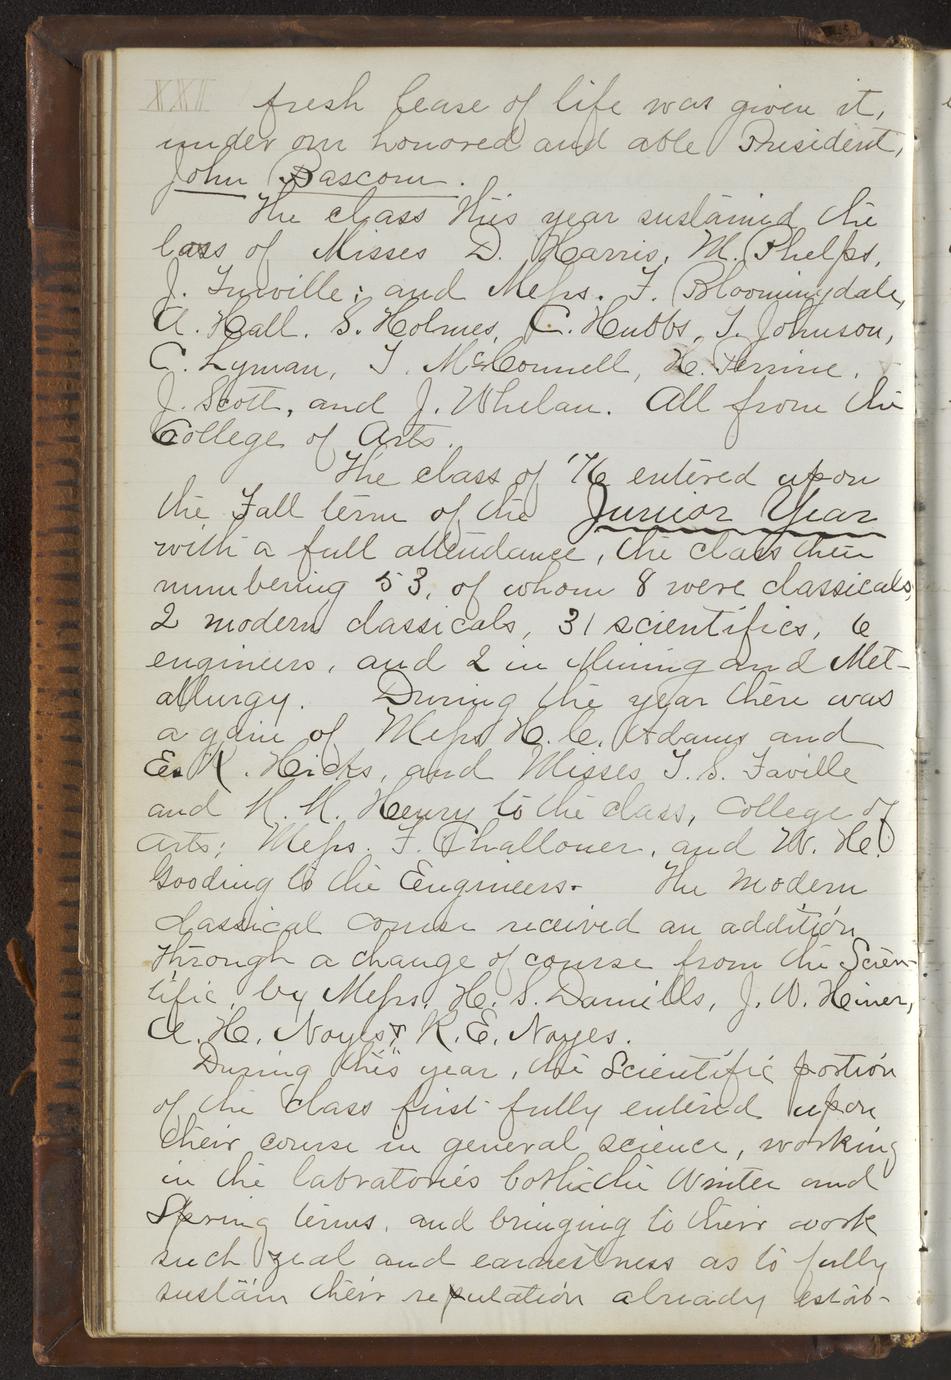 XXII fresh lease of life was given it,
under our honored and able President,
John Bascom.
The class this year sustained the
loss of Misses D. Harris, M. Phelps,
J. Turville; and Messrs. F. Bloomingdale,
A. Hall. S. Holmes, C. Hubbs, T. Johnson,
C. Lyman, T. McConnell, H. Perrine,
J. Scott, and J. Whelan. All from the
College of Arts.
The class of '76 entered upon
the Fall term of the Junior Year
with a full attendance, the class then
numbering 53, of whom 8 were classicals,
2 modern classicals, 31 scientifics, 6
engineers, and 2 in Mining and Met-
allurgy. During the year there was
a gain of Messrs H. C. Adams and
E. K. Hicks, and Misses T. S. Faville
and N. M. Henry to the class, College of
Arts; Messrs. F. Challoner, and W. H.
Gooding to the Engineers. The modern
classical course received an addition
through a change of course from the Scien-
tific, by Messrs. H. S. Daniells, J. W. Hiner,
A. H. Noyes & R. E. Noyes.
During this year, the Scientific portion
of the class first fully entered upon
their course in general science, working
in the labratories both the Winter and
Spring terms, and bringing to their work
such zeal and earnestness as to fully
sustain their reputation already estab-